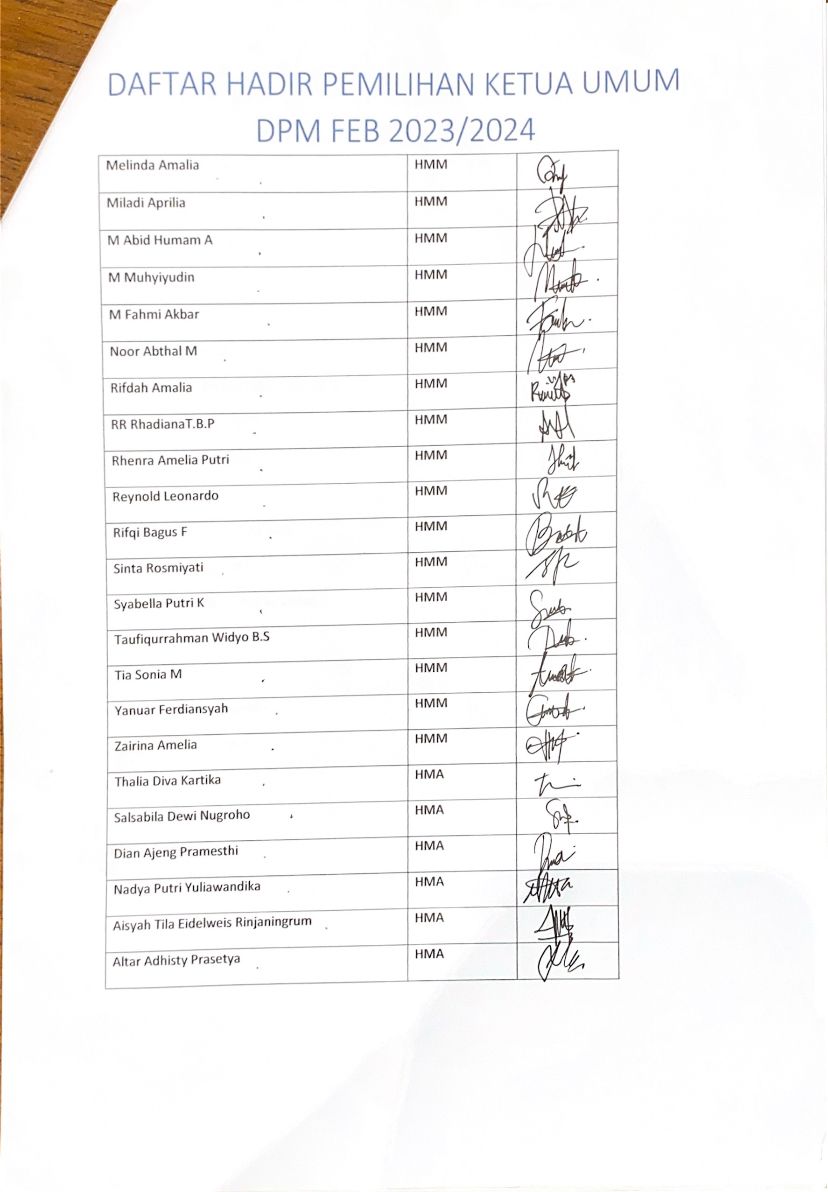 DAFTAR HADIR PEMILIHAN KETUA UMUM
DPM FEB 2023/2024
Melinda Amalia HMM
Miladi Aprilia HMM
M Abid Humam A HMM
M Muhyiyudin HMM
M Fahmi Akbar HMM
Noor Abthal M HMM
Rifdah Amalia HMM
RR RhadianaT.B.P HMM
Rhenra Amelia Putri HMM
Reynold Leonardo HMM
Rifqi Bagus F HMM
Sinta Rosmiyati HMM
Syabella Putri K HMM
Taufiqurrahman Widyo B.S HMM
Tia Sonia M HMM
Yanuar Ferdiansyah HMM
Zairina Amelia HMM
Thalia Diva Kartika HMA
Salsabila Dewi Nugroho HMA
Dian Ajeng Pramesthi HMA
Nadya Putri Yuliawandika HMA
Aisyah Tila Eidelweis Rinjaningrum HMA
Altar Adhisty Prasetya HMA